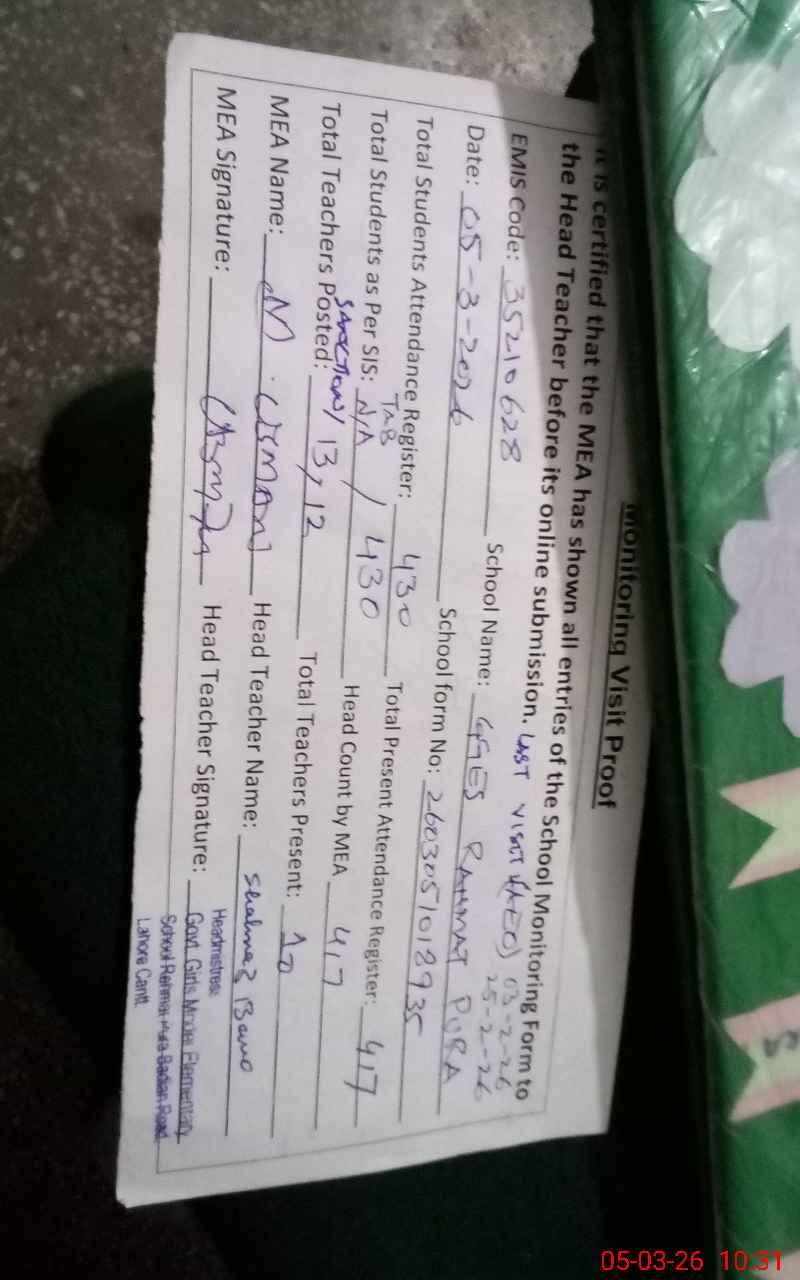 Monitoring Visit Proof
It is certified that the MEA has shown all entries of the School Monitoring Form to
the Head Teacher before its online submission. LAST VISIT (AEO) 03-2-26
25-2-26
EMIS Code: 35210628 School Name: GGES RAHMAT PURA
Date: 05-3-2026 School form No: 2603051018935
Total Students Attendance Register: 430 Total Present Attendance Register: 417
TAB
Total Students as Per SIS: N/A / 430 Head Count by MEA 417
SANCTION/
Total Teachers Posted: 13, 12 Total Teachers Present: 10
MEA Name: M. USMAN Head Teacher Name: Shahnaz Bano
MEA Signature: Head Teacher Signature:
Headmistress
Govt. Girls Model Elementary
School Rehmat Pura Badian Road
Lahore Cantt.
05-03-26 10:31